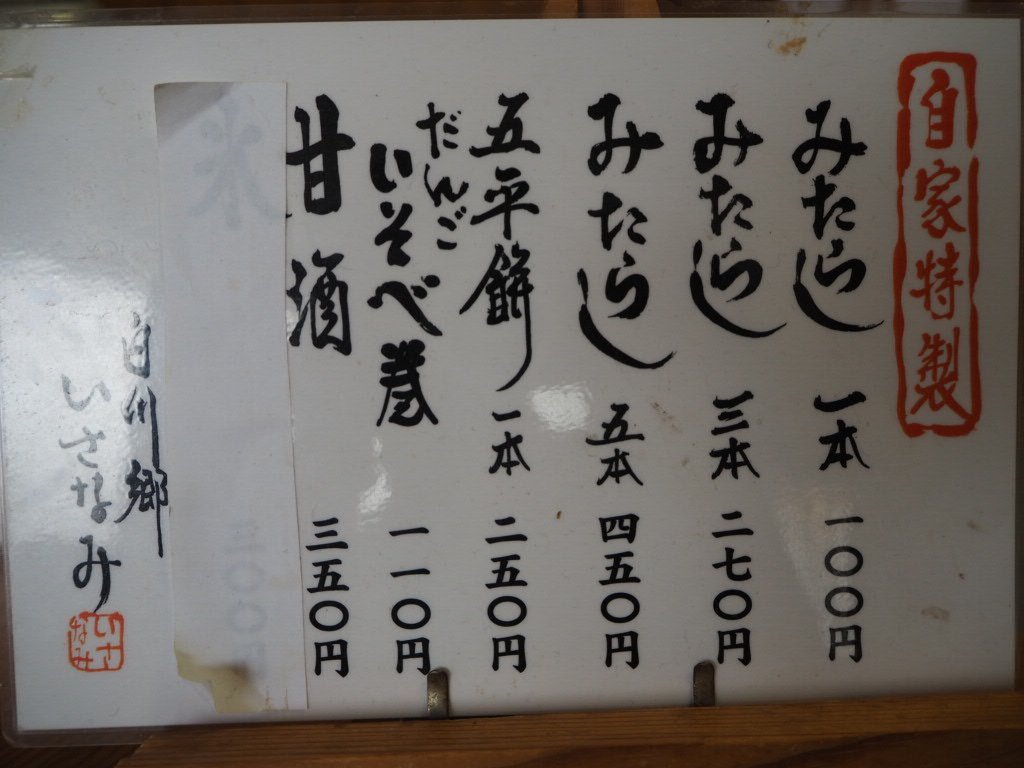 自家特製
みたらし 一本 一〇〇円
みたらし 三本 二七〇円
みたらし 五本 四五〇円
五平餅 一本 二五〇円
だんご
いそべ巻 一一〇円
甘酒 三五〇円
白川郷
いさなみ
いさなみ